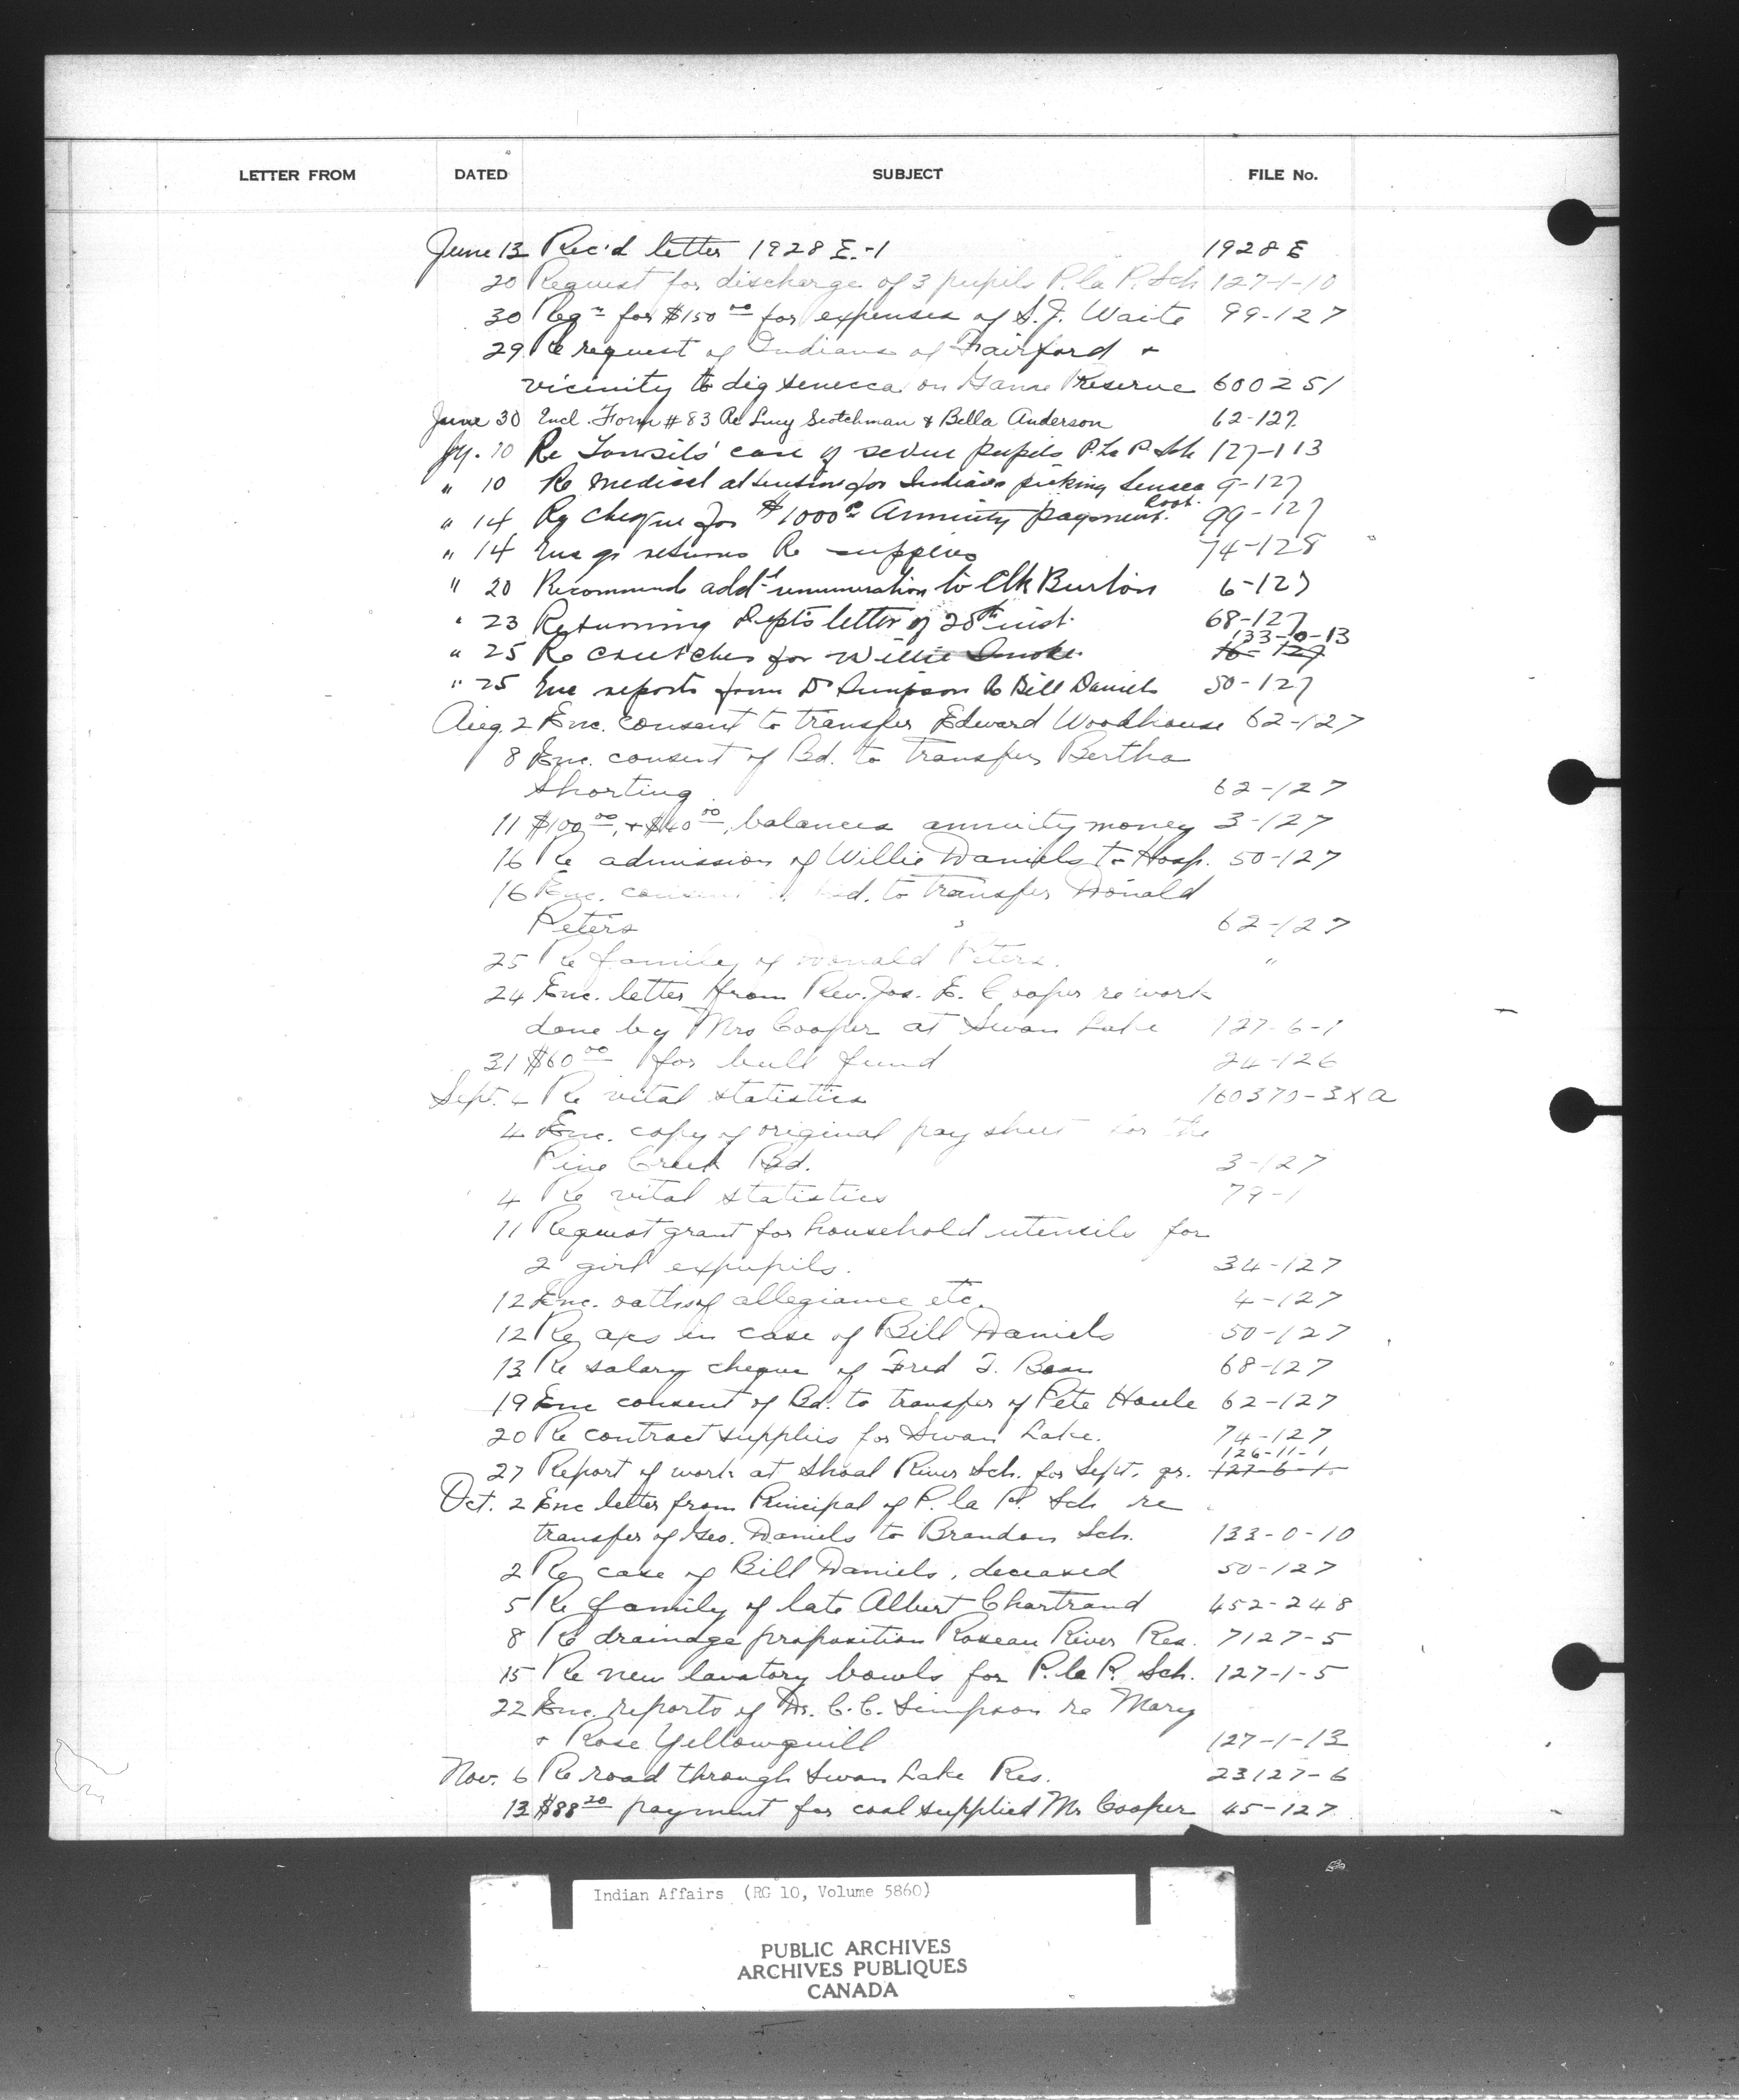 LETTER FROM DATED SUBJECT FILE No.
June 13 Rec'd letter 1928 E.-1 1928 E
20 Request for discharge of 3 pupils P. la P. Sch 127-1-10
30 Req for $150 00 for expenses of S.J. Waite 99-127
29 Re request of Indians of Fairford +
vicinity to dig senecca on Game Preserve 600251
June 30 Encl. Form # 83 Re Lucy Scotchman & Bella Anderson 62-127
Jy. 10 Re Tonsils' case of seven pupils P. La P. Sch 127-1 13
" 10 Re medical attention for Indians picking Seneca 9-127
root.
" 14 Rq cheque for $1000 Annuity payment. 99-127
" 14 returns Re supplies 74-128
" 20 Recommends add'l renumeration to Clk Burton 6-127
" 23 Returning Dept's letter of 20th inst. 68-127
133-0-13
" 25 Re crutches for Willie Smoke 16-127
" 25 Enc reports from Dr Simpson Re Bill Daniels 50-127
Aug. 2 Enc. consent to transfer Edward Woodhouse 62-127
8 Enc. consent of Bd. to transfer Bertha
Shorting. 62-127
11 $100 00, + $40 00, balances annuity money 3-127
16 Re admission of Willie Daniels to Hosp. 50-127
16 Enc. consent Bd. to transfer Donald
Peters 62-127
25 Re family of Donald Peters. "
24 Enc. letter from Rev. Jos. E. Cooper re work
done by Mrs Cooper at Swan Lake 127-6-1
31 $60 00 for bull fund 24-126
Sept. 4 Re vital statistics 160370-3XA
4 Enc. copy of original pay sheet for the
Pine Creek Bd. 3-127
4 Re vital statistics 79-1
11 Request grant for household utensils for
2 girl expupils. 34-127
12 Enc. oaths of allegiance etc. 4-127
12 Re axs in case of Bill Daniels 50-127
13 Re salary cheque of Fred T. Bean 68-127
19 Enc consent of Bd. to transfer of Pete Houle 62-127
20 Re contract supplies for Swan Lake. 74-127
126-11-1
27 Report of work at Shoal River Sch. for Sept. qr. 127-6-1
Oct. 2 Enc letter from Principal of P. la P. Sch re
transfer of Geo. Daniels to Brandon Sch. 133-0-10
2 Re case of Bill Daniels, deceased 50-127
5 Re family of late Albert Chartrand 452-248
8 Re drainage proposition Roseau River Res. 7127-5
15 Re new lavatory bowls for P. la P. Sch. 127-1-5
22 Enc. reports of Dr. C.C. Simpson re Mary
+ Rose Yellowquill 127-1-13
Nov. 6 Re road through Swan Lake Res. 23127-6
13 $88 20 payment for coal supplied Mr Cooper 45-127
Indian Affairs (RG 10, Volume 5860)
PUBLIC ARCHIVES
ARCHIVES PUBLIQUES
CANADA